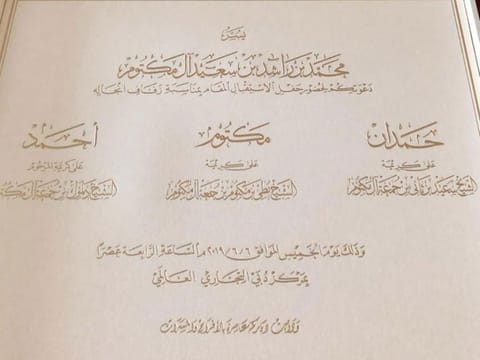 يسر
محمد بن راشد بن سعيد آل مكتوم
دعوتكم لحضور حفل الاستقبال المقام بمناسبة زفاف أنجاله
حمدان
على كريمة
الشيخ سعيد بن ثاني بن جمعة آل مكتوم
مكتوم
على كريمة
الشيخ بطي بن مكتوم بن جمعة آل مكتوم
أحمد
على كريمة المرحوم
الشيخ بن جمعة آل مكتوم
وذلك يوم الخميس الموافق ٢٠١٩/٦/٦م الساعة الرابعة عصراً
بمركز دبي التجاري العالمي
ودامت دياركم عامرة بالأفراح والمسرات